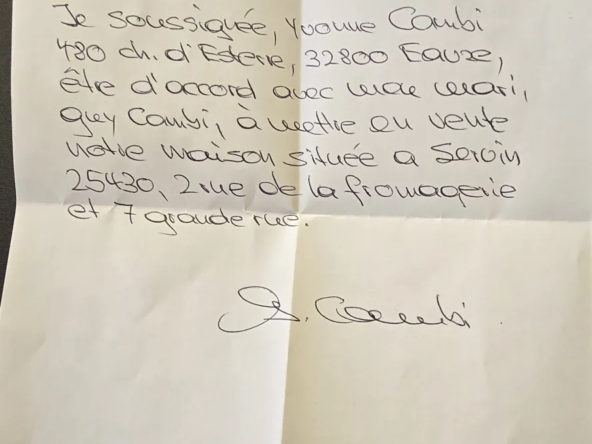 Je soussignée, Yvonne Cambi
480 ch. d'Esterie, 32800 Eauze,
être d'accord avec mon mari,
guy Cambi, à mettre en vente
notre maison située a Servin
25430, 2 rue de la fromagerie
et 7 grande rue.
Y. Cambi